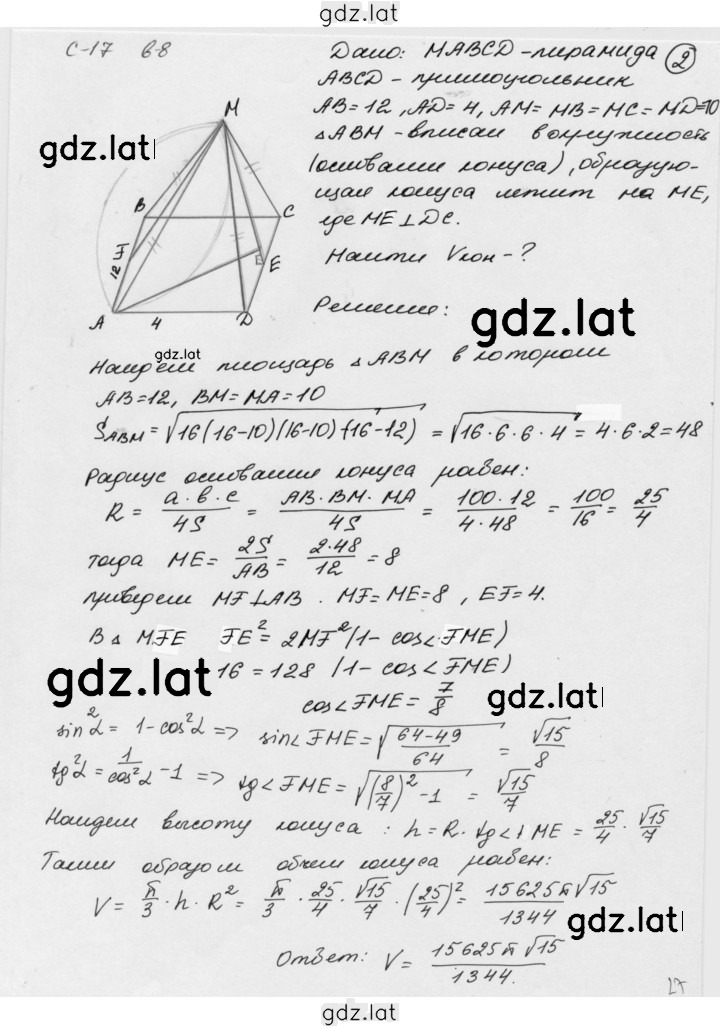 gdz.lat
С-17 в-8
Дано: MABCD - пирамида ②
ABCD - прямоугольник
AB = 12, AD = 4, AM = MB = MC = MD = 10
△ABM - вписан в окружность
(основании конуса), образую-
щая конуса лежит на ME,
где ME ⊥ DC.
Найти Vкон - ?
gdz.lat
M
B
C
F
12
E
E
A
4
D
Решение:
gdz.lat
Найдем площадь △ABM в котором
AB = 12, BM = MA = 10
S_ABM = √(16(16-10)(16-10)(16-12)) = √(16·6·6·4) = 4·6·2 = 48
Радиус основания конуса равен:
R = a·b·c/4S = AB·BM·MA/4S = 100·12/4·48 = 100/16 = 25/4
тогда ME = 2S/AB = 2·48/12 = 8
приведем MF ⊥ AB. MF = ME = 8, EF = 4.
В △ MFE FE² = 2MF²(1 - cos∠FME)
gdz.lat
16 = 128 (1 - cos∠FME)
cos∠FME = 7/8
gdz.lat
sin²α = 1 - cos²α => sin∠FME = √((64-49)/64) = √15/8
tg²α = 1/cos²α - 1 => tg∠FME = √((8/7)² - 1) = √15/7
Найдем высоту конуса: h = R·tg∠FME = 25/4 · √15/7
Таким образом объем конуса равен:
V = π/3 · h · R² = π/3 · 25/4 · √15/7 · (25/4)² = 15625π√15/1344
gdz.lat
Ответ: V = 15625π√15/1344.
27
gdz.lat